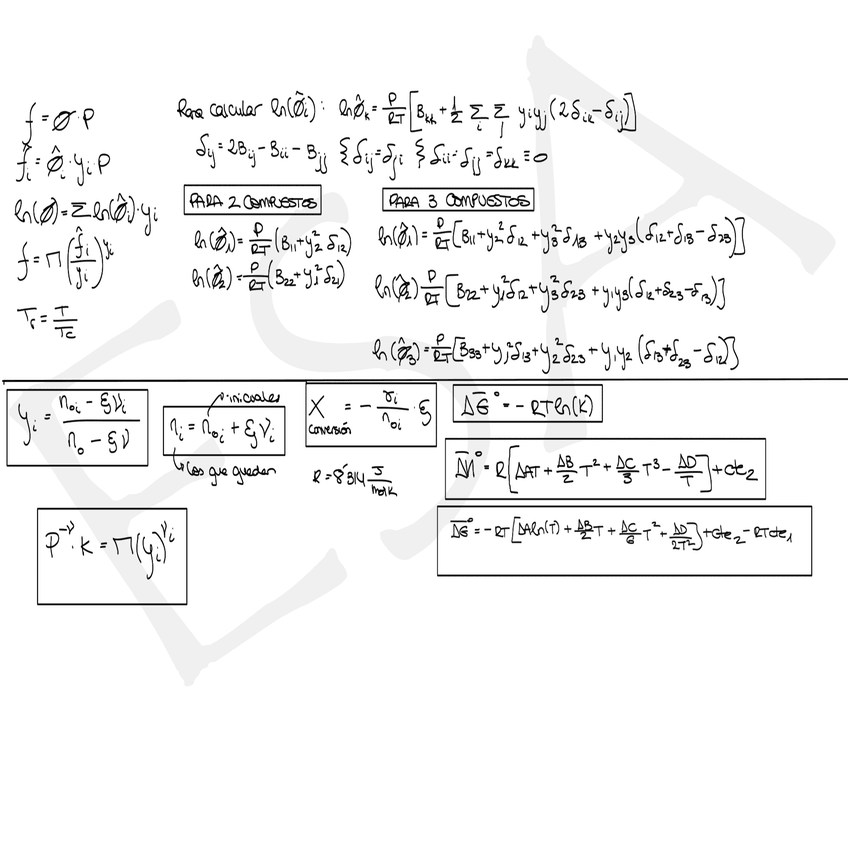 f = Ø · P
f̂ᵢ = ϕ̂ᵢ · yᵢ P
ln(Ø) = Σ ln(ϕ̂ᵢ) · yᵢ
f = Π (f̂ᵢ / yᵢ)^yᵢ
Tr = T / Tc
Para calcular ln(ϕ̂ᵢ): ln ϕ̂ₖ = P/RT [Bₖₖ + 1/2 Σᵢ Σⱼ yᵢyⱼ (2δᵢₖ − δᵢⱼ)]
δᵢⱼ = 2Bᵢⱼ − Bᵢᵢ − Bⱼⱼ { δᵢⱼ = δⱼᵢ { δᵢᵢ = δⱼⱼ = δₖₖ ≡ 0
PARA 2 COMPUESTOS
ln(ϕ̂₁) = P/RT (B₁₁ + y₂² δ₁₂)
ln(ϕ̂₂) = P/RT (B₂₂ + y₁² δ₂₁)
PARA 3 COMPUESTOS
ln(ϕ̂₁) = P/RT [B₁₁ + y₂² δ₁₂ + y₃² δ₁₃ + y₂y₃ (δ₁₂ + δ₁₃ − δ₂₃)]
ln(ϕ̂₂) P/RT [B₂₂ + y₁² δ₁₂ + y₃² δ₂₃ + y₁y₃ (δ₁₂ + δ₂₃ − δ₁₃)]
ln(ϕ̂₃) = P/RT [B₃₃ + y₁² δ₁₃ + y₂² δ₂₃ + y₁y₂ (δ₁₃ + δ₂₃ − δ₁₂)]
yᵢ = (n₀ᵢ − ξνᵢ) / (n₀ − ξν)
iniciales
nᵢ = n₀ᵢ + ξνᵢ
los que quedan
X = − (σᵢ / n₀ᵢ) · ξ
conversión
R = 8'314 J/mol K
ΔG° = − RT ln(K)
ΔH° = R [ΔAT + ΔB/2 T² + ΔC/3 T³ − ΔD/T] + cte₂
ΔG° = − RT [ΔA ln(T) + ΔB/2 T + ΔC/6 T² + ΔD/2T²] + cte₂ − RT cte₁
P^−ν · K = Π (yᵢ)^νᵢ
ESA